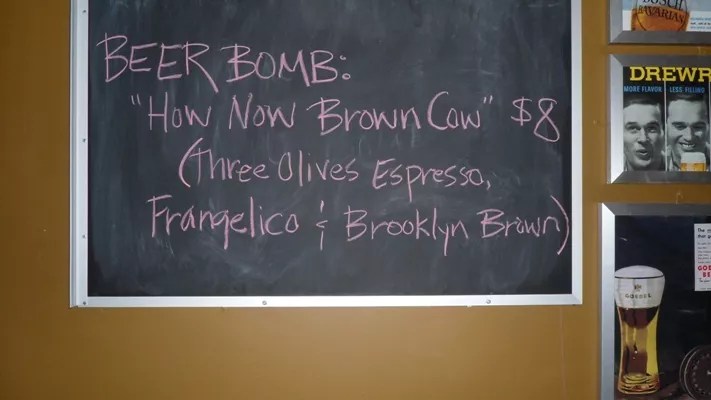 BEER BOMB:
"How Now Brown Cow" $8
(Three Olives Espresso,
Frangelico & Brooklyn Brown)
BUSCH
BAVARIAN
DREWR
MORE FLAVOR LESS FILLING
GOEBEL
The
GOE
BE